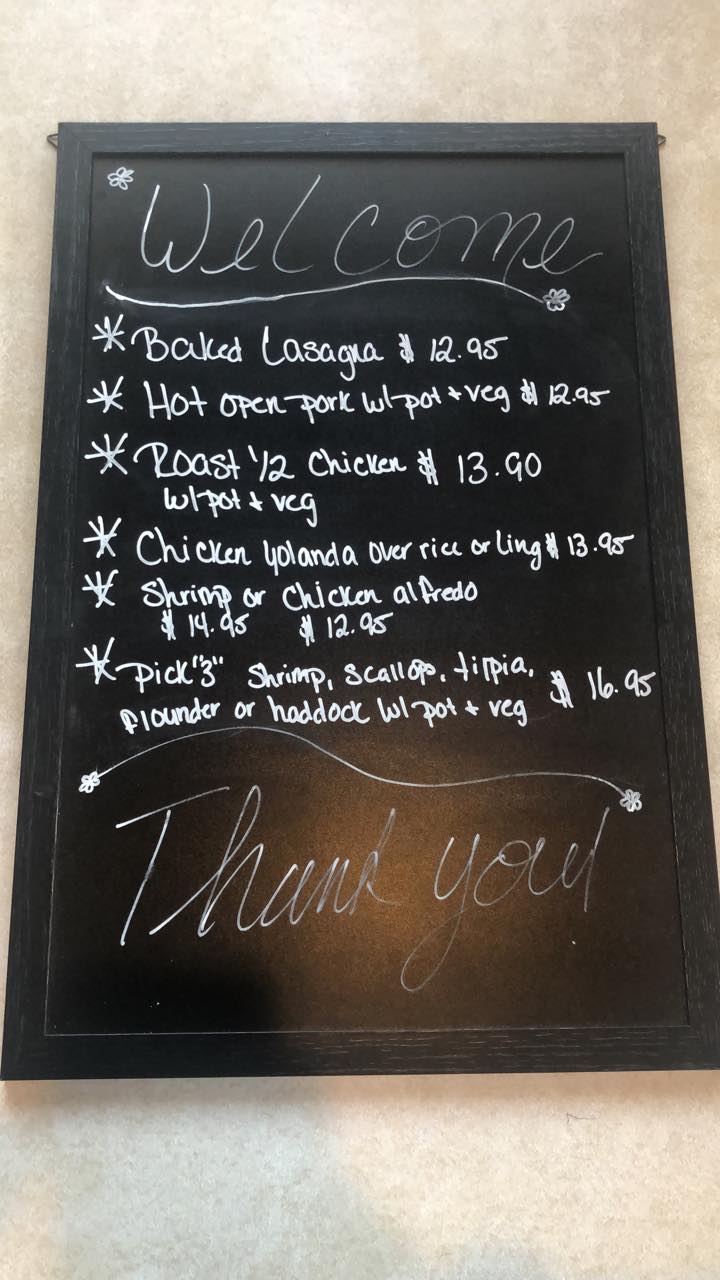 Welcome
* Baked Lasagna $ 12.95
* Hot open pork w/ pot + veg $ 12.95
* Roast 1/2 Chicken $ 13.90
w/ pot + veg
* Chicken Yolanda over rice or Ling $ 13.95
* Shrimp or Chicken alfredo
$ 14.95 $ 12.95
* Pick "3" Shrimp, scallops, tilpia, $ 16.95
flounder or haddock w/ pot + veg
Thank you!